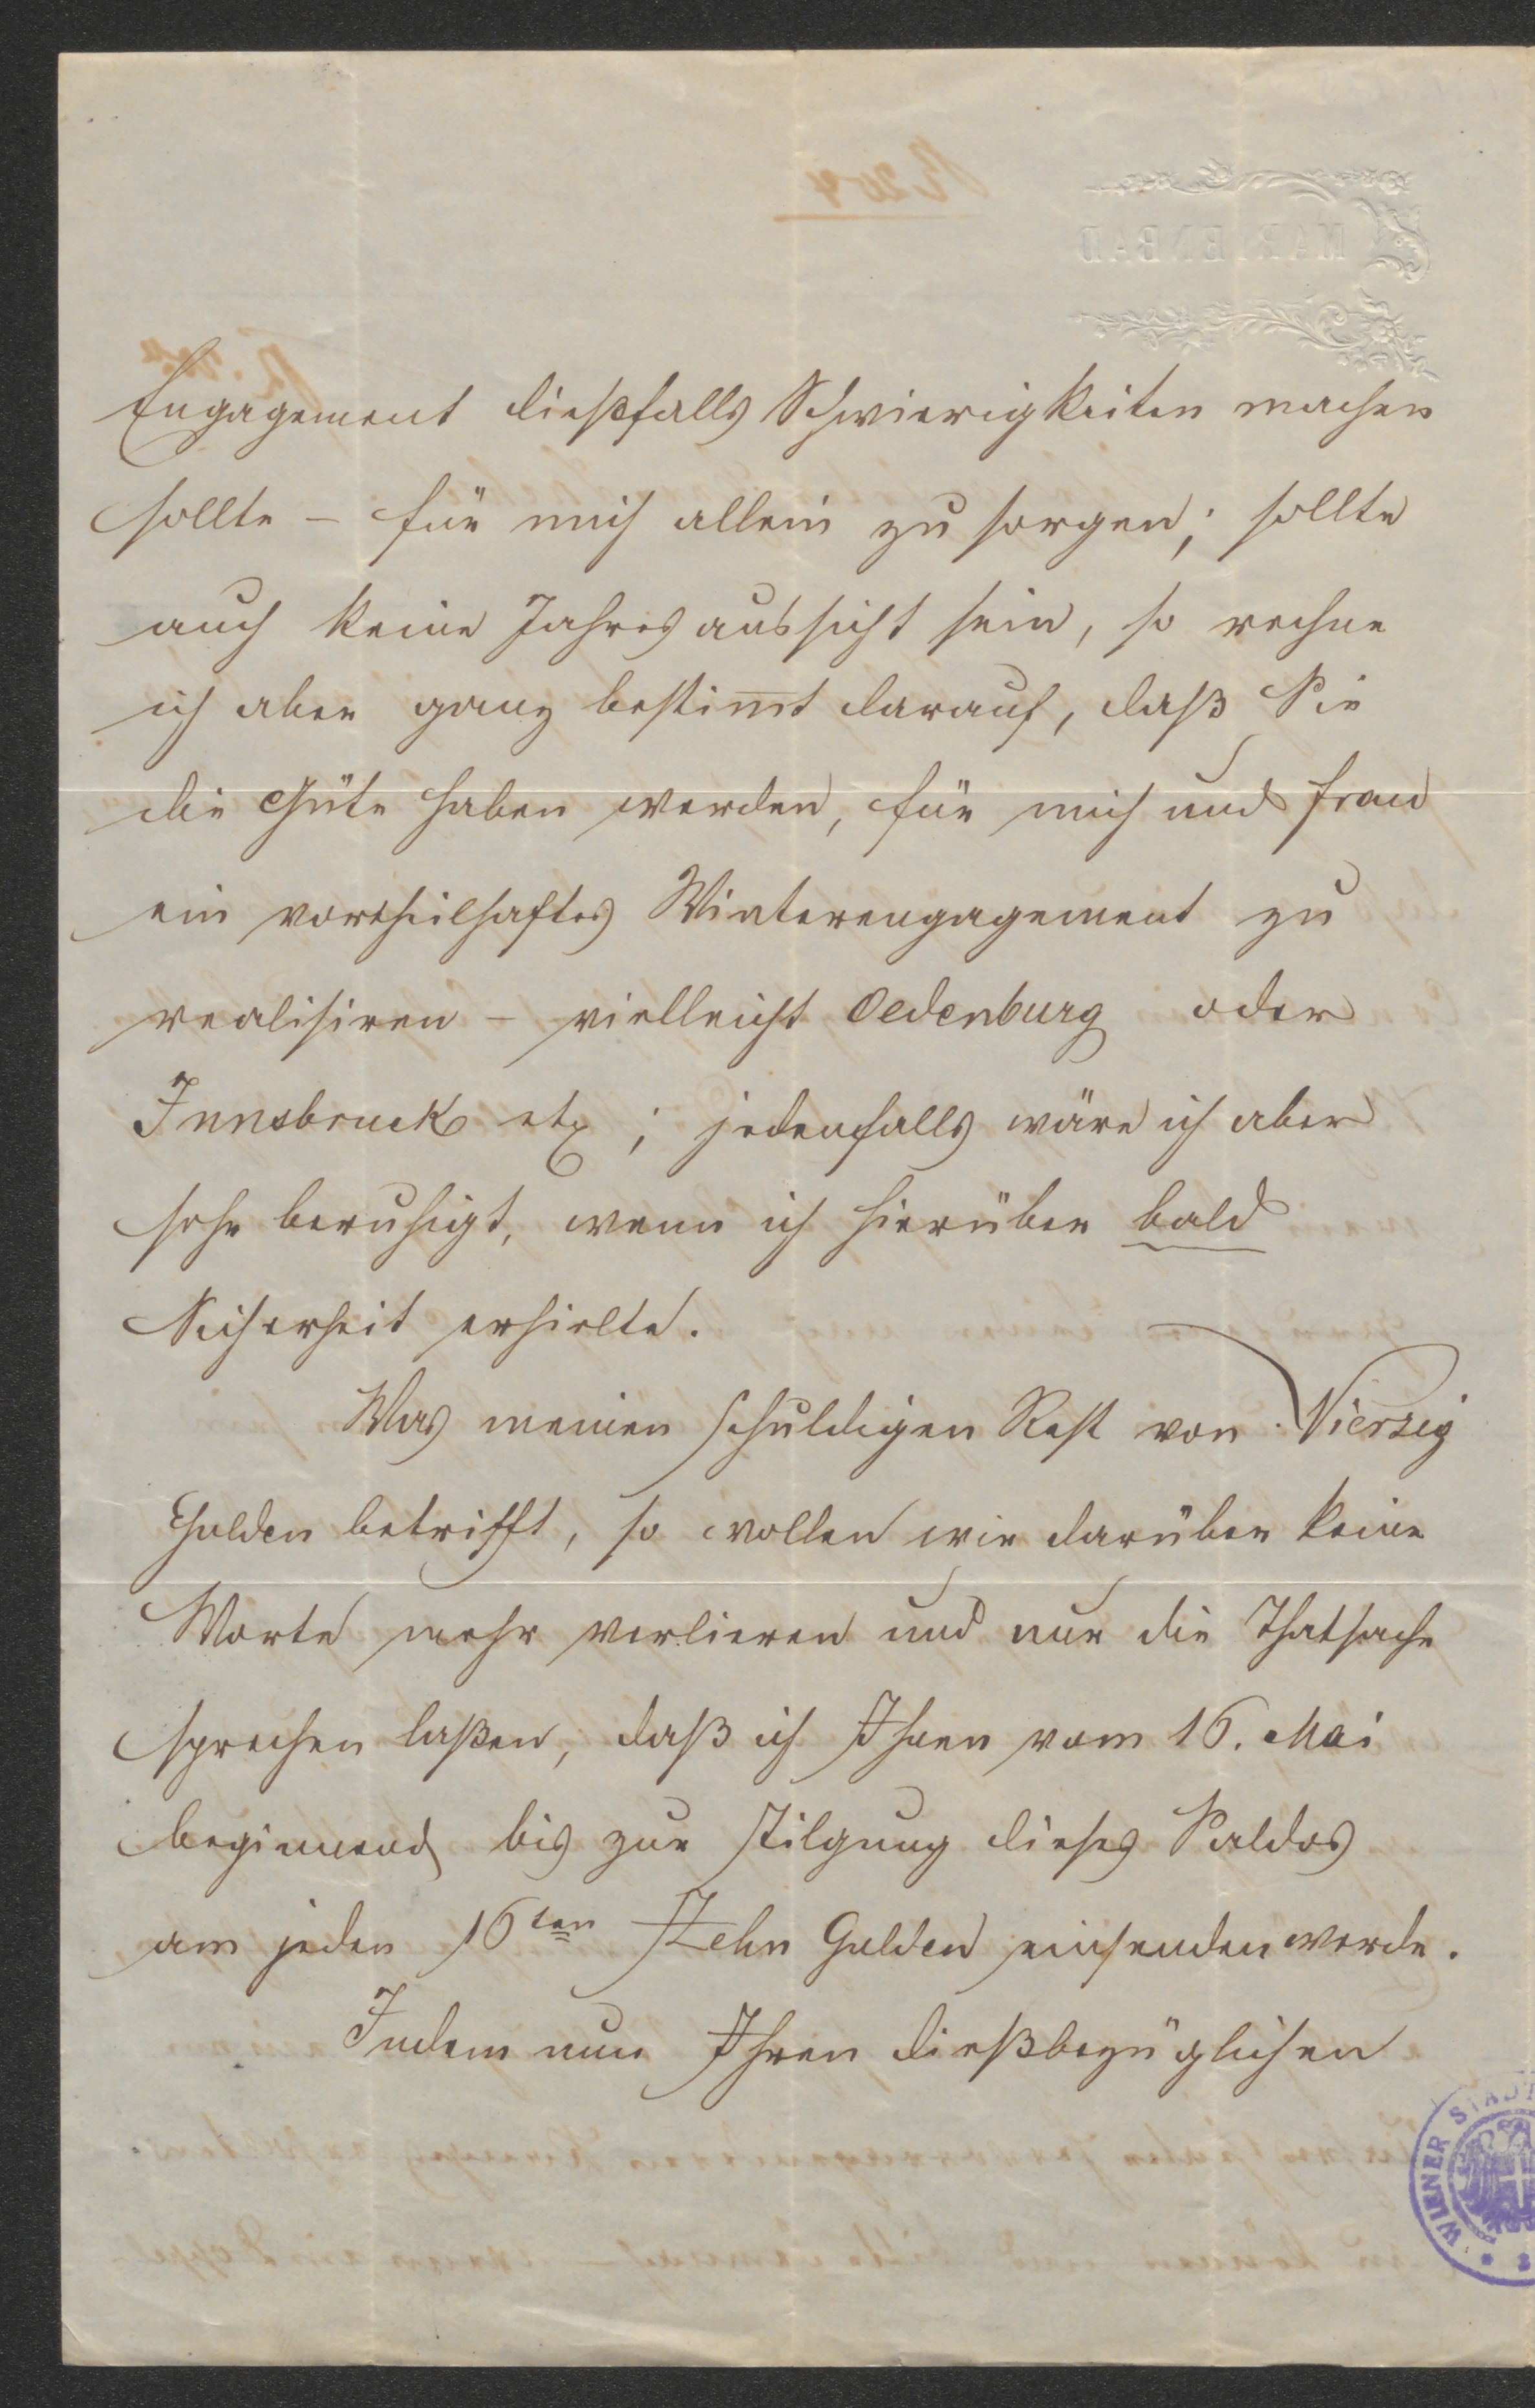 Engagement dießfalls Schwierigkeiten machen
sollte – für mich allein zu sorgen; sollte
auch keine Jahresaussicht sein, so rechne
ich aber ganz bestim̅t darauf, daß Sie
die Güte haben werden, für mich und Frau
ein vortheilhaftes Winterengagement zu
realisiren – vielleicht Oedenburg oder
Innsbruck etz; jedenfalls wäre ich aber
sehr beruhigt, wenn ich hierüber bald
Sicherheit erhielte.
Was meinen schuldigen Rest von Vierzig
Gulden betrifft, so wollen wir darüber keine
Worte mehr verlieren und nur die Thatsache
sprechen laßen, daß ich Ihnen vom 16. Mai
beginnend bis zur Tilgung dieses Saldos
am jeden 16ten Zehn Gulden einsenden werde.
Indem nun Ihren dießbezüglichen
WIENER STADT
MARIENBAD